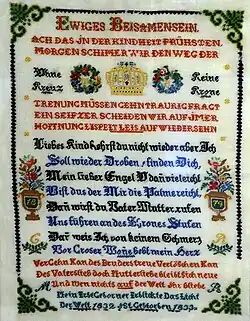 EWIGES BEISAMENSEIN.
ACH DAS JN DER KINDHEIT FRÜHSTEN
MORGEN SCHIMER WIR DEN WEG DER
Ohne Keine
Kreuz Krone
TRENUNG MÜSSEN GEHN TRAURIG FRAGT
EIN SEUFZER SCHEIDEN WIR AUF JMER
HOFFNUNG LISPELT LEIS AUF WIEDERSEHN
Liebes Kind hörst du nicht wieder aber Ich
Soll wieder Droben finden Dich,
Mein lieber Engel Dan vieleicht
Bist du's der Mir die Palme reicht,
Dan wirst du Vater Mutter rufen
Uns führen an des Trones Stufen
Dar weis Ich von keinem Schmerz
Vor Groser Wonne bebt mein Herz
Ver Gehn Kan des Bruders treue Verlöschen Kan
Des Vaters lieb doch Mutterliebe bleibt sich neu
Und wen nichts auf der Welt Ihr bliebe
Mein Erstgeborner Erblickte Das Licht
Der Welt 1832 1833